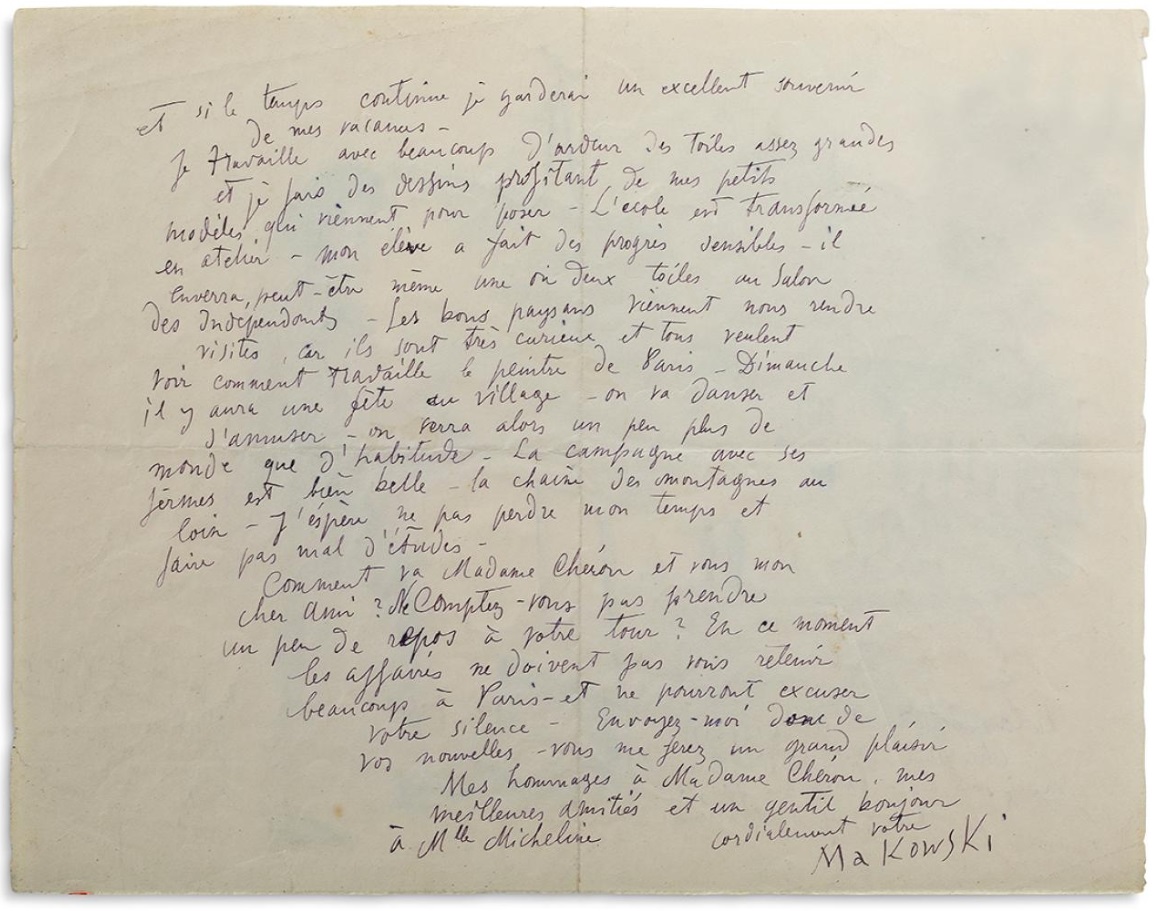 et si le temps continue je garderai un excellent souvenir
de mes vacances –
Je travaille avec beaucoup d'ardeur des toiles assez grandes
et je fais des dessins profitant de mes petits
modèles qui viennent pour poser – L'école est transformée
en atelier – mon élève a fait des progrès sensibles – il
enverra, peut-être même une ou deux toiles au Salon
des Indépendants – Les bons paysans viennent nous rendre
visites, car ils sont très curieux et tous veulent
voir comment travaille le peintre de Paris – Dimanche
il y aura une fête au village – on va danser et
s'amuser – on verra alors un peu plus de
monde que d'habitude – La campagne avec ses
fermes est bien belle – la chaine des montagnes au
loin – J'éspère ne pas perdre mon temps et
faire pas mal d'études –
Comment va Madame Chéron et vous mon
cher Ami ? Ne Comptez-vous pas prendre
un peu de repos à votre tour ? En ce moment
les affaires ne doivent pas vous retenir
beaucoup à Paris – et ne pourront excuser
votre silence – Envoyez-moi donc de
vos nouvelles – vous me ferez un grand plaisir
Mes hommages à Madame Chéron, mes
meilleures amitiés et un gentil bonjour
à Mlle Micheline cordialement votre
Makowski